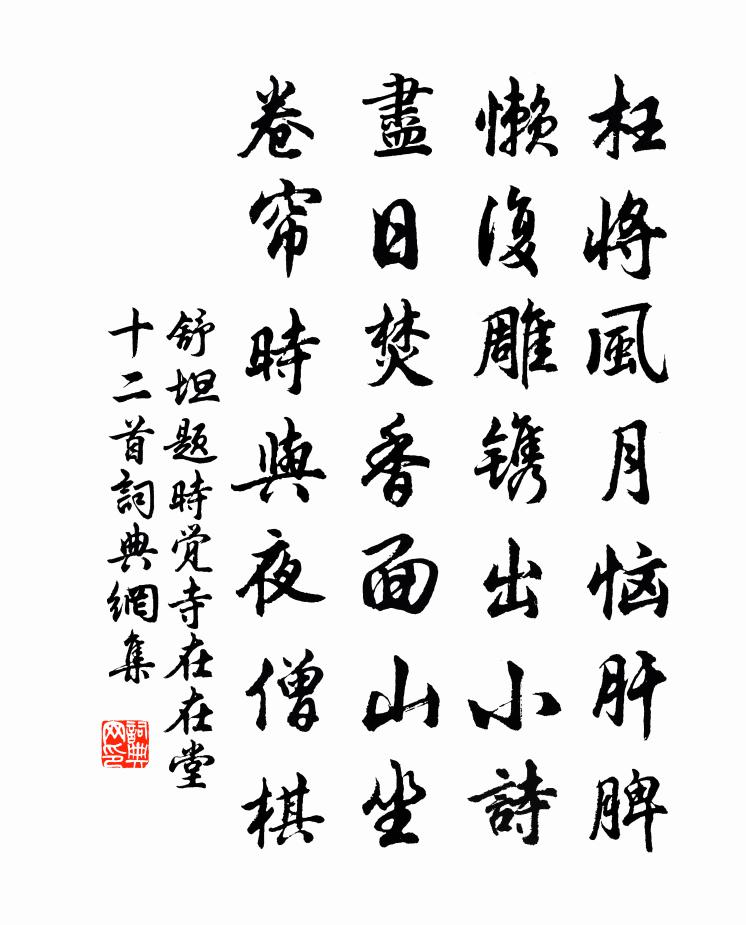 枉將風月恼肝脾
懶復雕镌出小詩
盡日焚香面山坐
卷帘時與夜僧棋
舒坦题時觉寺在在堂
十二首詞典網集
詞典
网印